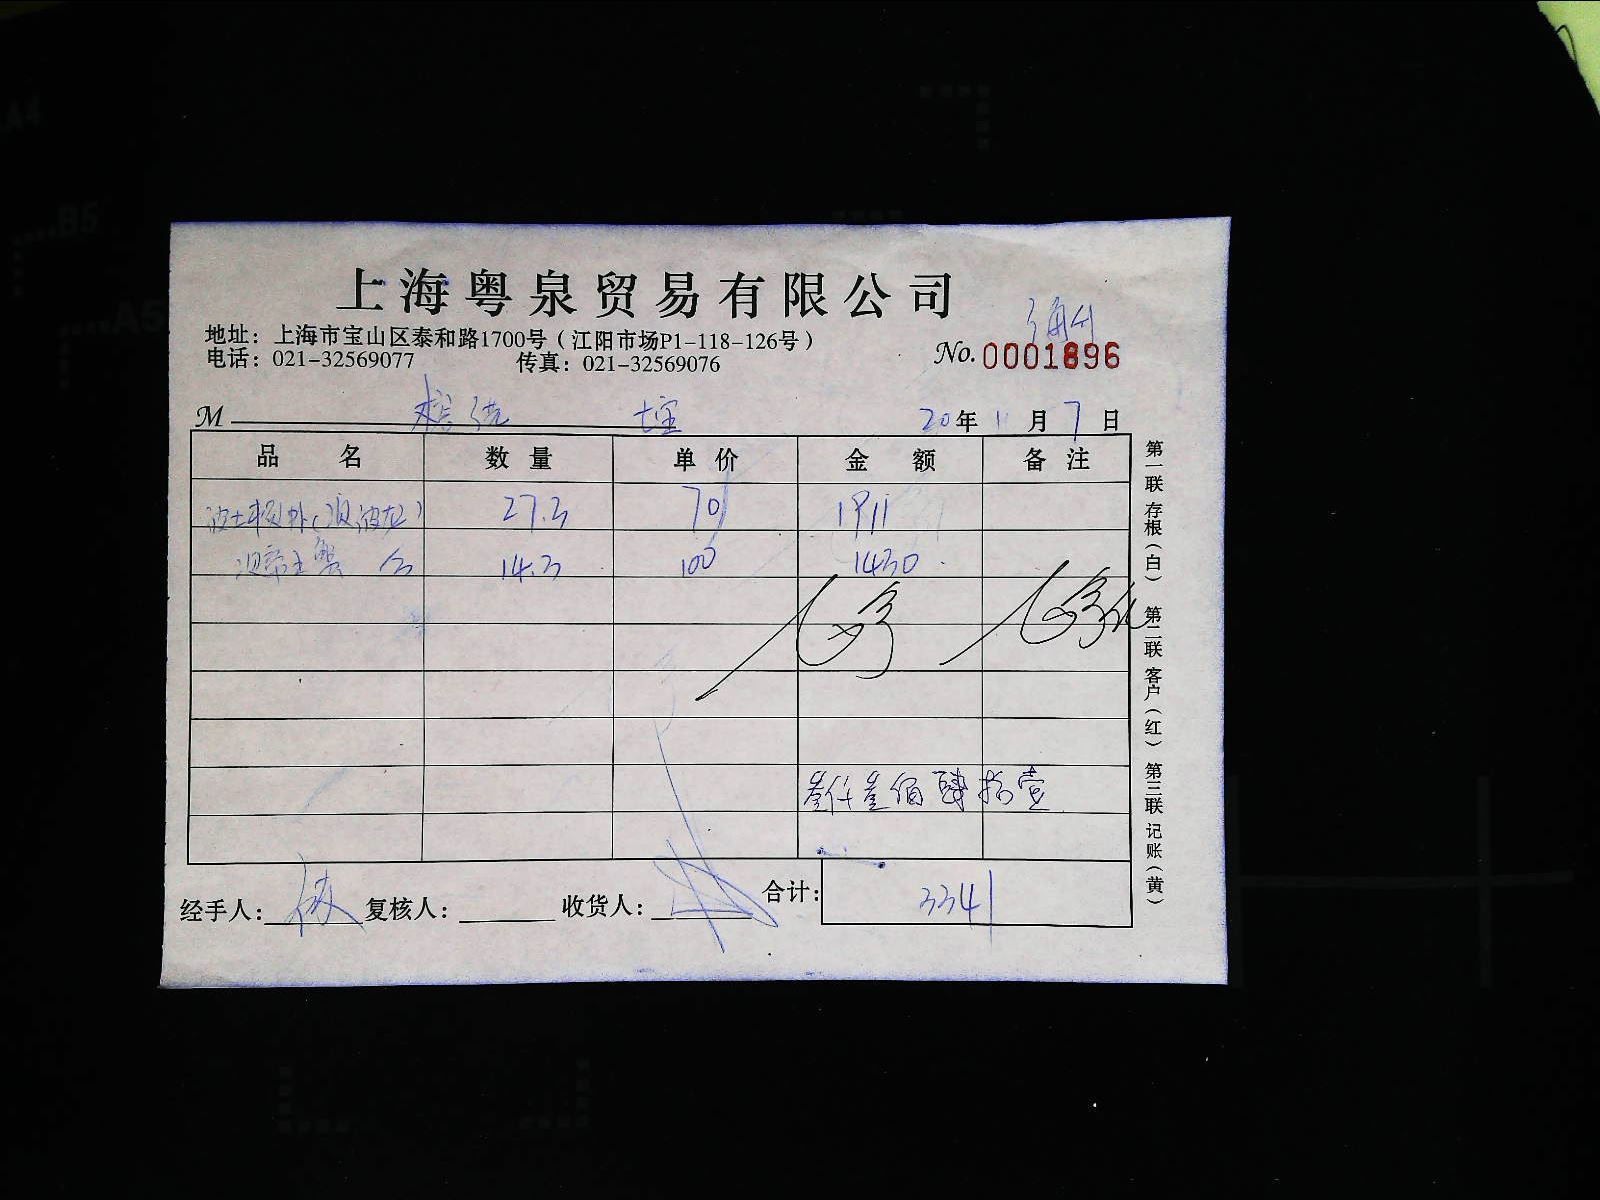 上海粤泉贸易有限公司
地址：上海市宝山区泰和路1700号（江阳市场P1-118-126号）
电话：021-32569077 传真：021-32569076
No. 0001896
M 20年11月7日
品名 数量 单价 金额 备注
27.3 70 1911
14.3 100 1430
叁仟叁佰肆拾壹
经手人： 复核人： 收货人： 合计： 3341
第一联 存根（白） 第二联 客户（红） 第三联 记账（黄）
A4
B5
A5